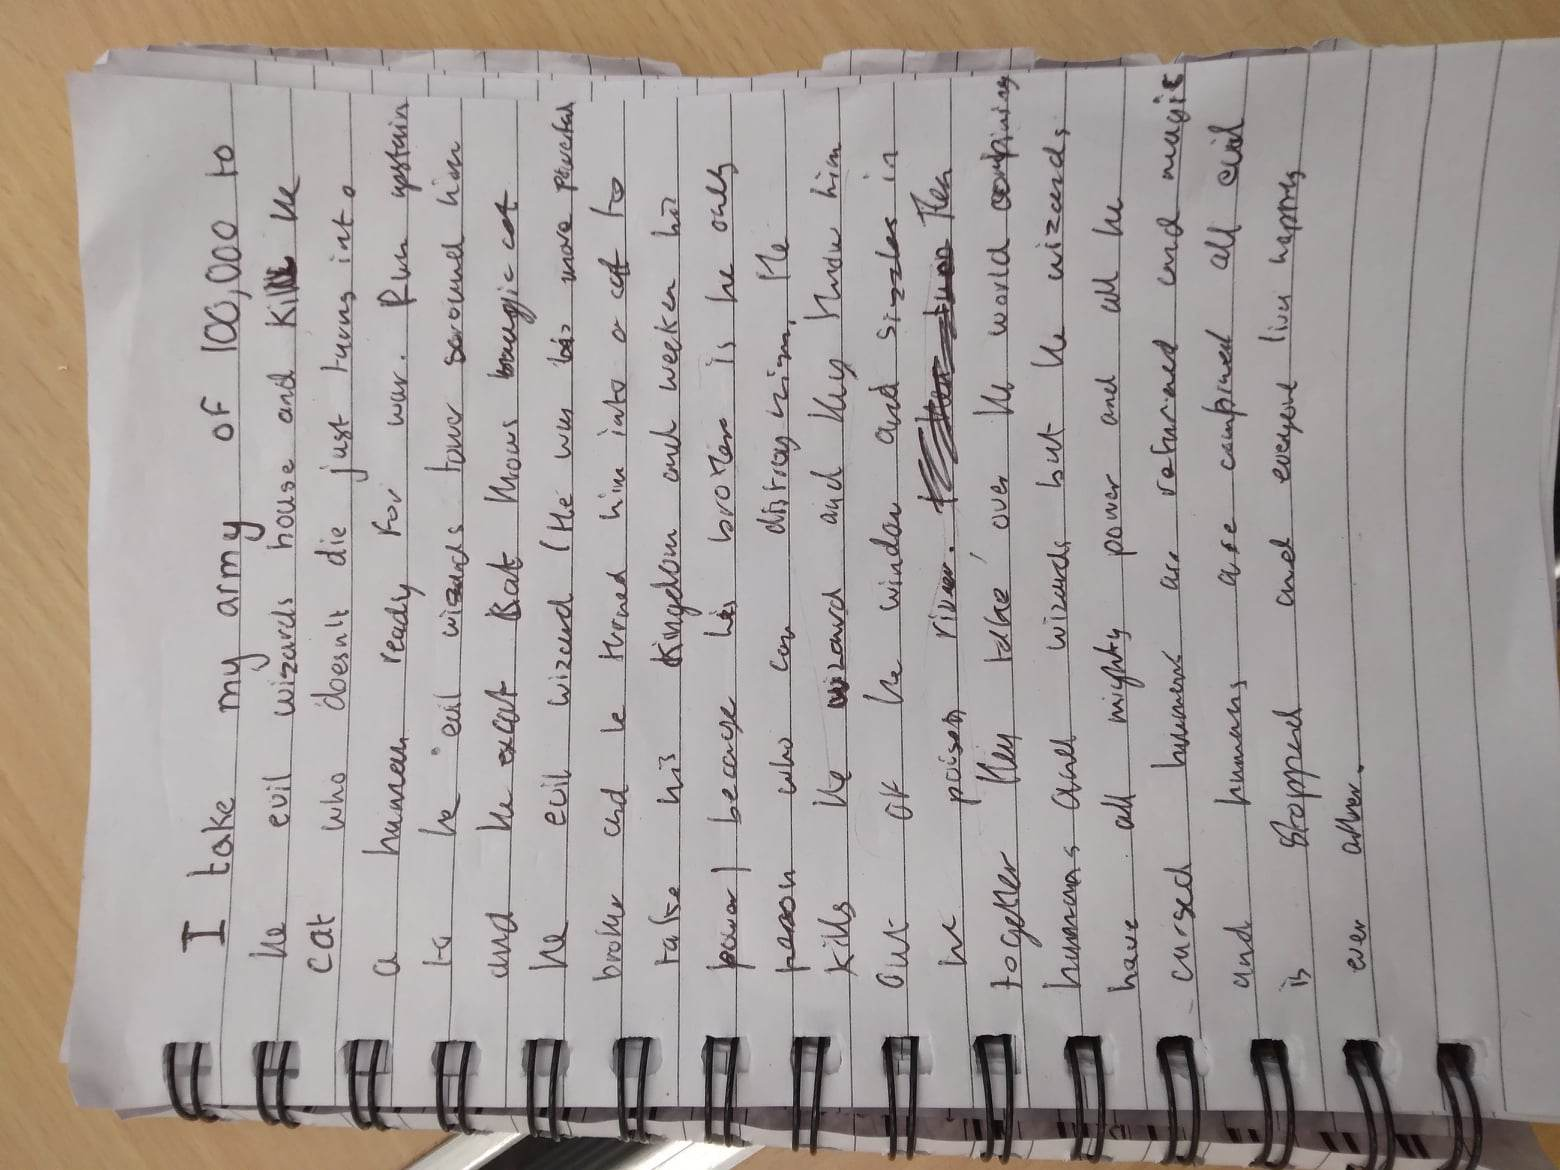 I take my army of 100,000 to
the evil wizards house and kill the
cat who doesnt die just turns into
a human ready for war. Run upstairs
to the evil wizards tower seround him
and the cat Bat knows magic
the evil wizard (He was his more powerful
brother and he turned him into a cat to
take his kingdom and weeken his
power) because his brother is the only
person who can distroy him. He
kills the wizard and they throw him
out of the window and sizzles in
the poison river. Then
together they take over the world combining
humans and wizards but the wizards
have all mighty power and all the
cursed humans are returned and magic
and humans are combined all evil
is stopped and everyone lives happily
ever after.